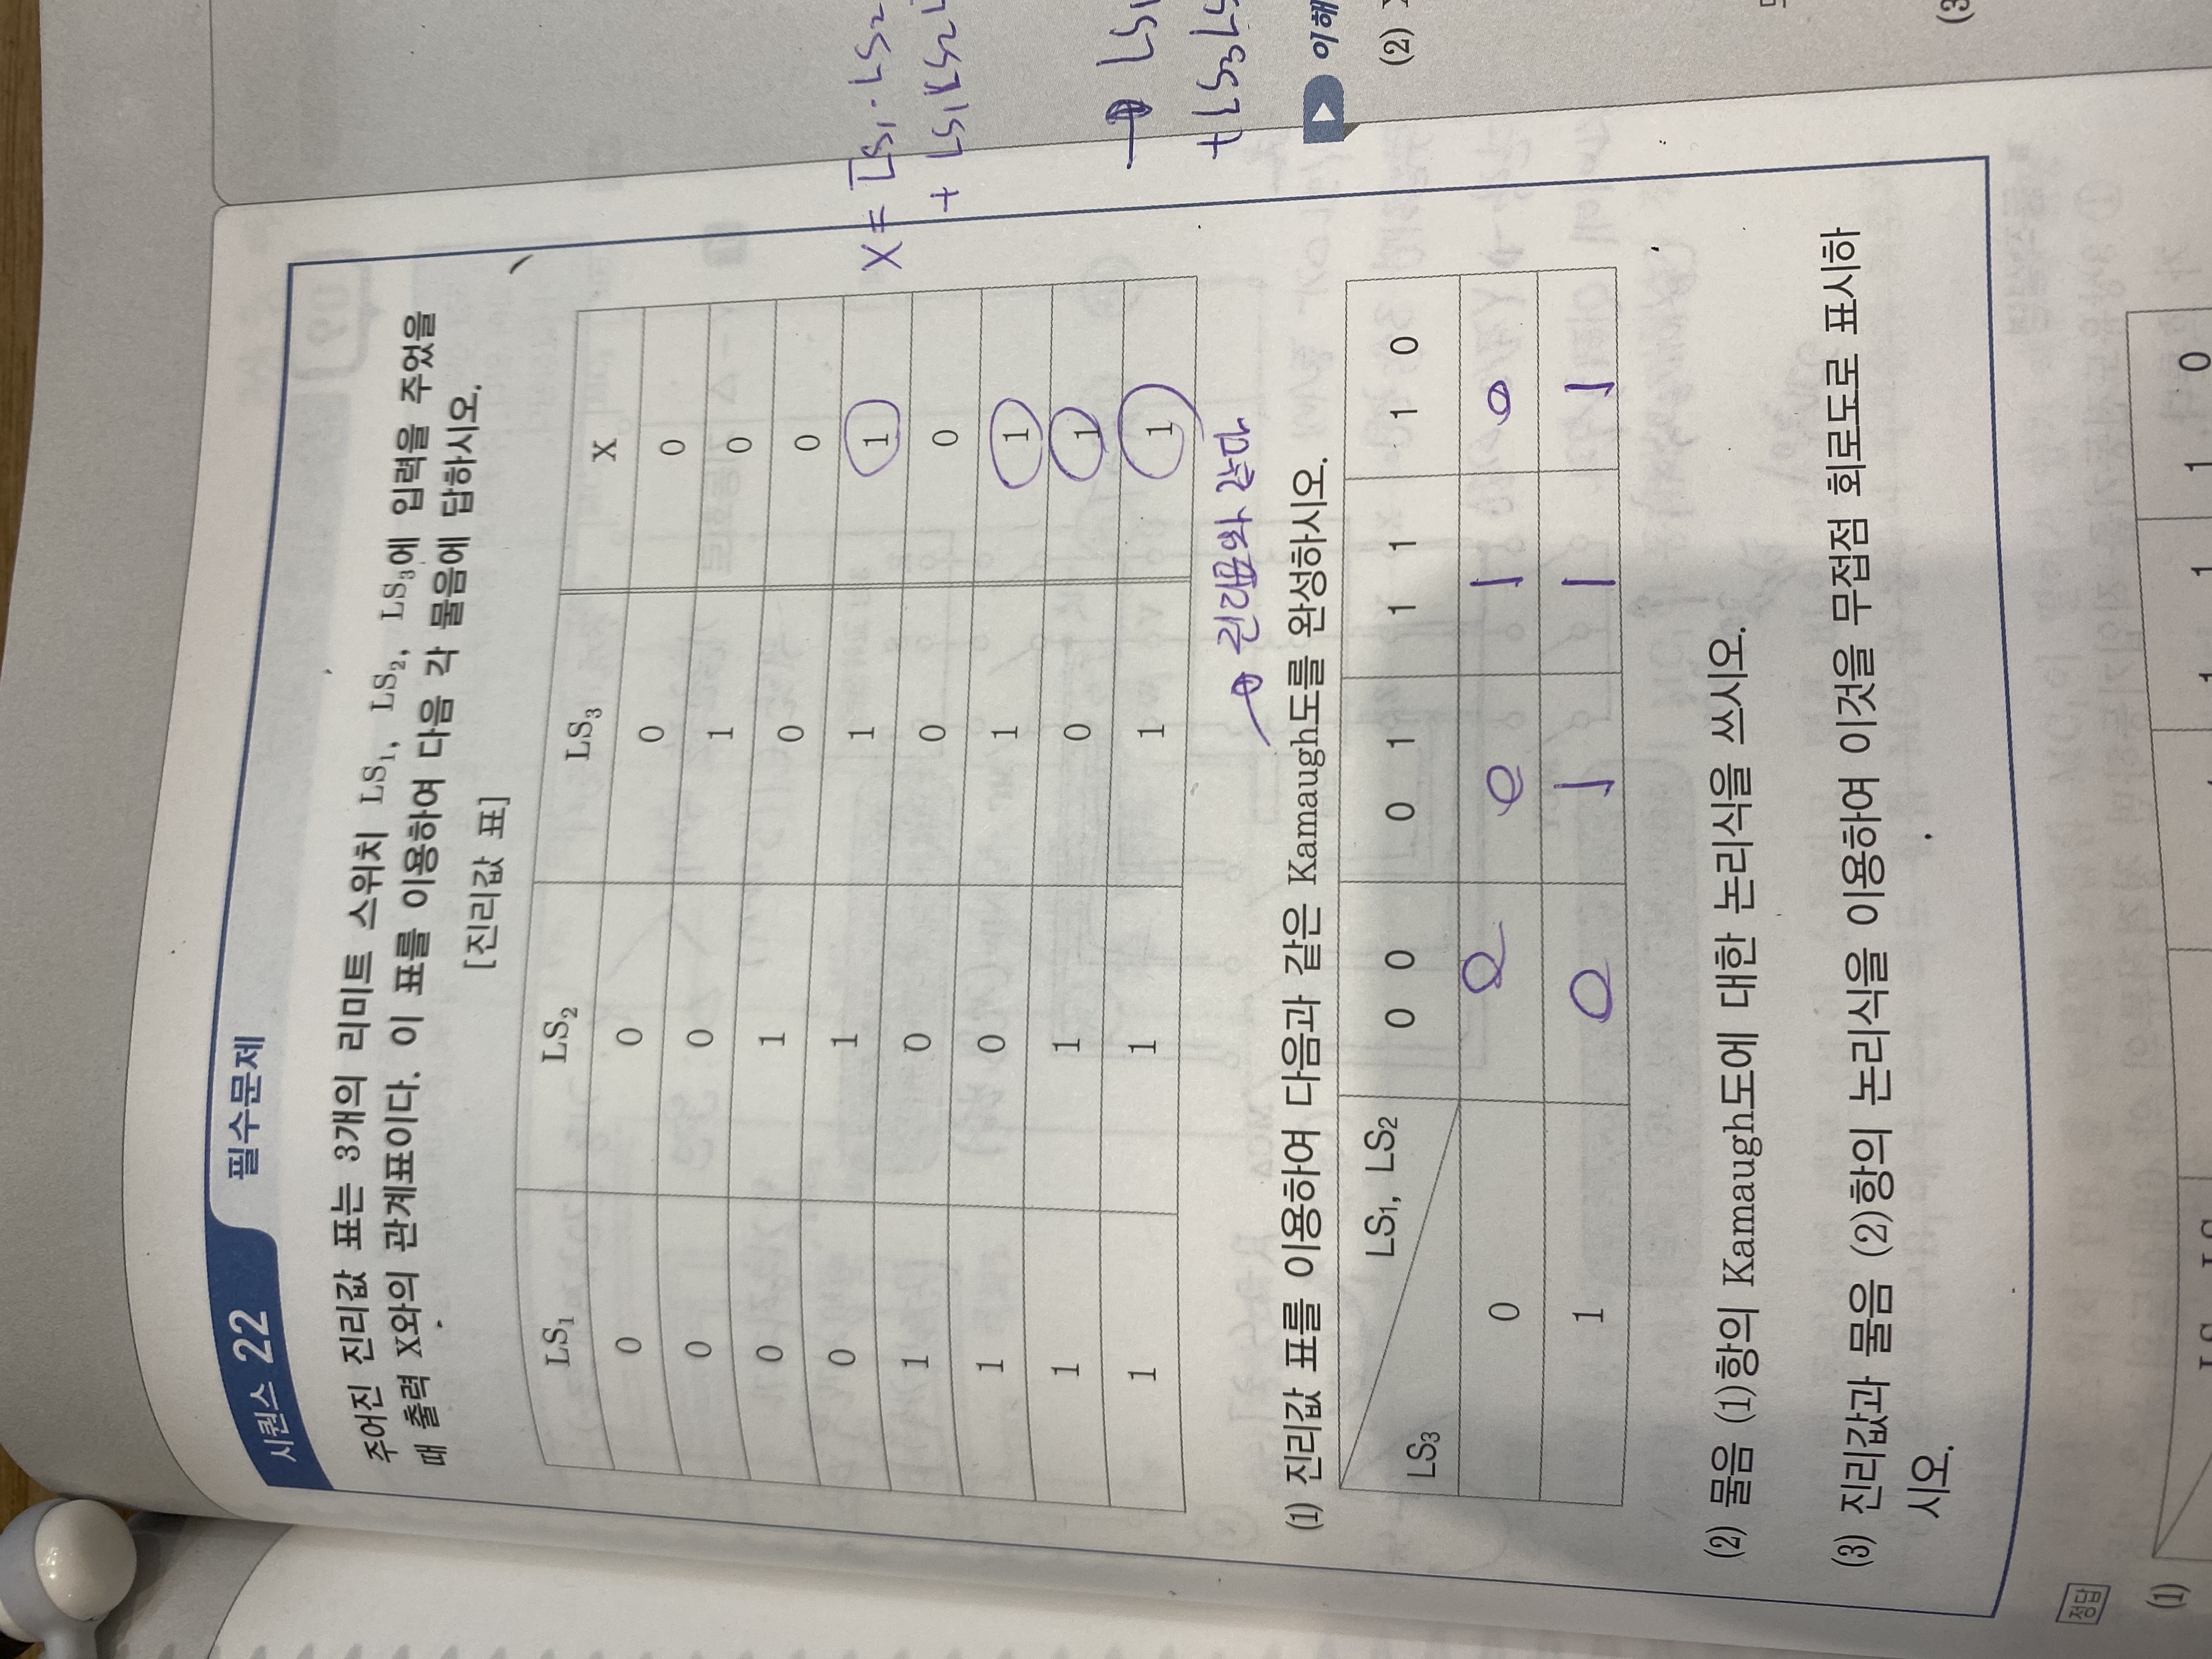 시퀀스 22 필수문제
주어진 진리값 표는 3개의 리미트 스위치 LS₁, LS₂, LS₃에 입력을 주었을
때 출력 X와의 관계표이다. 이 표를 이용하여 다음 각 물음에 답하시오.
[진리값 표]
LS₁ LS₂ LS₃ X
0 0 0 0
0 0 1 0
0 1 0 0
0 1 1 1
1 0 0 0
1 0 1 1
1 1 0 1
1 1 1 1
진리표와 같게
(1) 진리값 표를 이용하여 다음과 같은 Karnaugh도를 완성하시오.
LS₁, LS₂
LS₃
0 0 0 1 1 1 1 0
0 0 0 1 0
1 0 1 1 1
(2) 물음 (1)항의 Karnaugh도에 대한 논리식을 쓰시오.
(3) 진리값과 물음 (2)항의 논리식을 이용하여 이것을 무접점 회로도로 표시하
시오.
정답
(1)
1 1 0
(2)